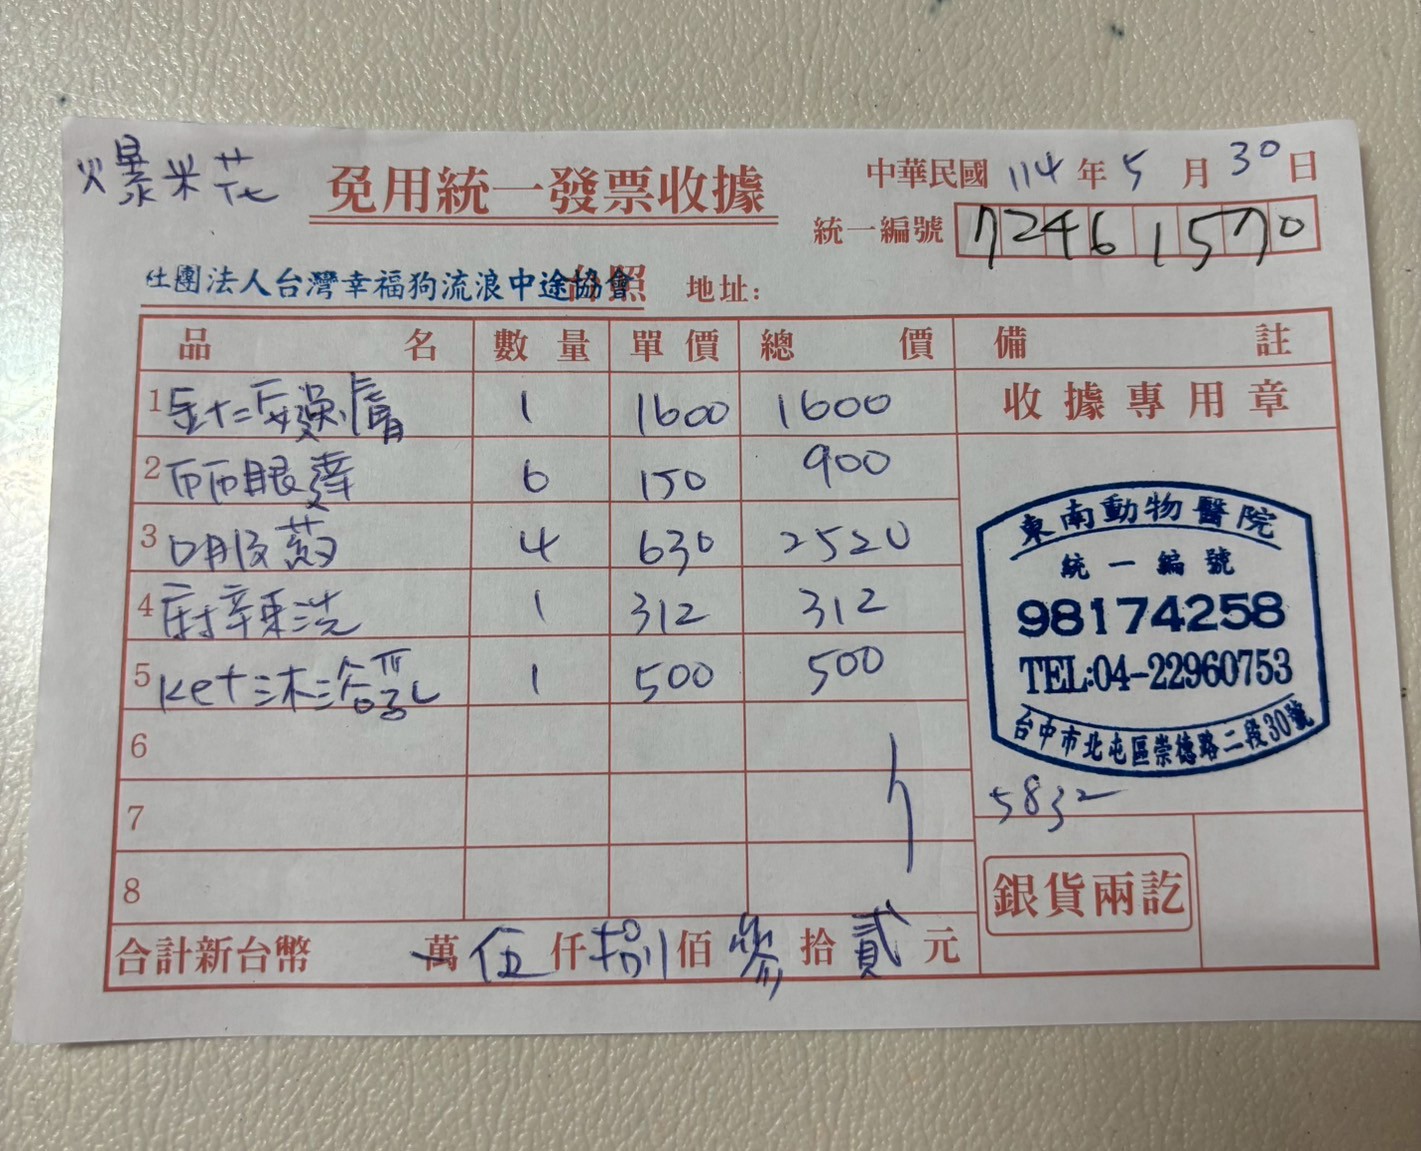 爆米花
免用統一發票收據
中華民國 114 年 5 月 30 日
統一編號 72461570
社團法人台灣幸福狗流浪中途協會 台照 地址:
品名 數量 單價 總價 備註
1 1 1600 1600
收據專用章
2 眼 6 150 900
3 口服藥 4 630 2520
4 1 312 312
5 1 500 500
6
7
8
東南動物醫院
統一編號
98174258
TEL:04-22960753
台中市北屯區崇德路二段30號
5832
銀貨兩訖
合計新台幣 萬 伍 仟 捌 佰 參 拾 貳 元